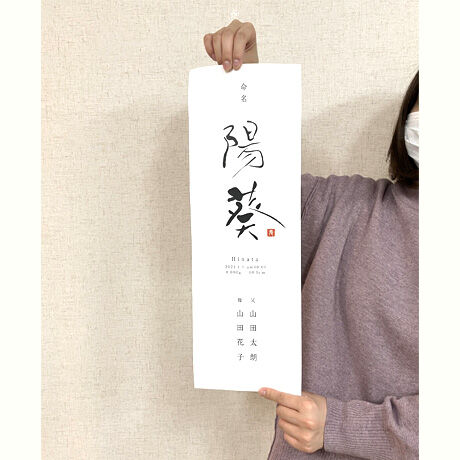 命名
陽葵
Hinata
父 山田太朗
母 山田花子